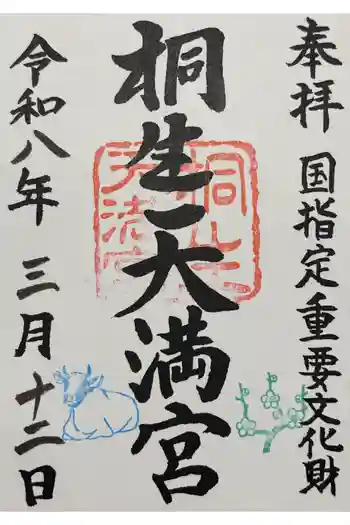 奉拝 国指定重要文化財
桐生天満宮
令和八年 三月十二日